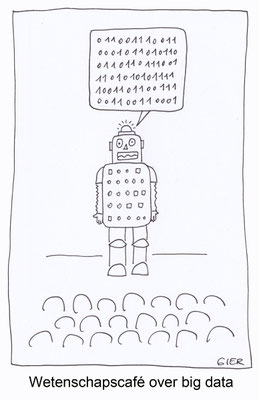 0 011 00111 0 011
0 01 11 0 01 010110
0 11 0 11 0 11 11001
11 01 0 10101111
100 11 011 00 111
0 0 11 0011 0001
GIER
Wetenschapscafé over big data